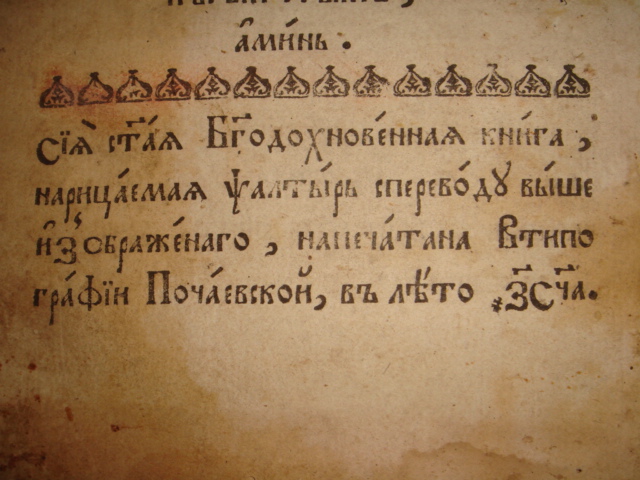 а҆ми́нь.
Сїѧ̀ ст҃а́ѧ Бг҃одохнове́ннаѧ кни́га,
нарица́емаѧ ѱалты́рь сперево́дꙋ вы́ше
и҆з̾ѡбраже́наго, напеча́тана Втипо
гра́фїи Поча́евской, въ лѣ́то ҂з҃с҃ч҃а.